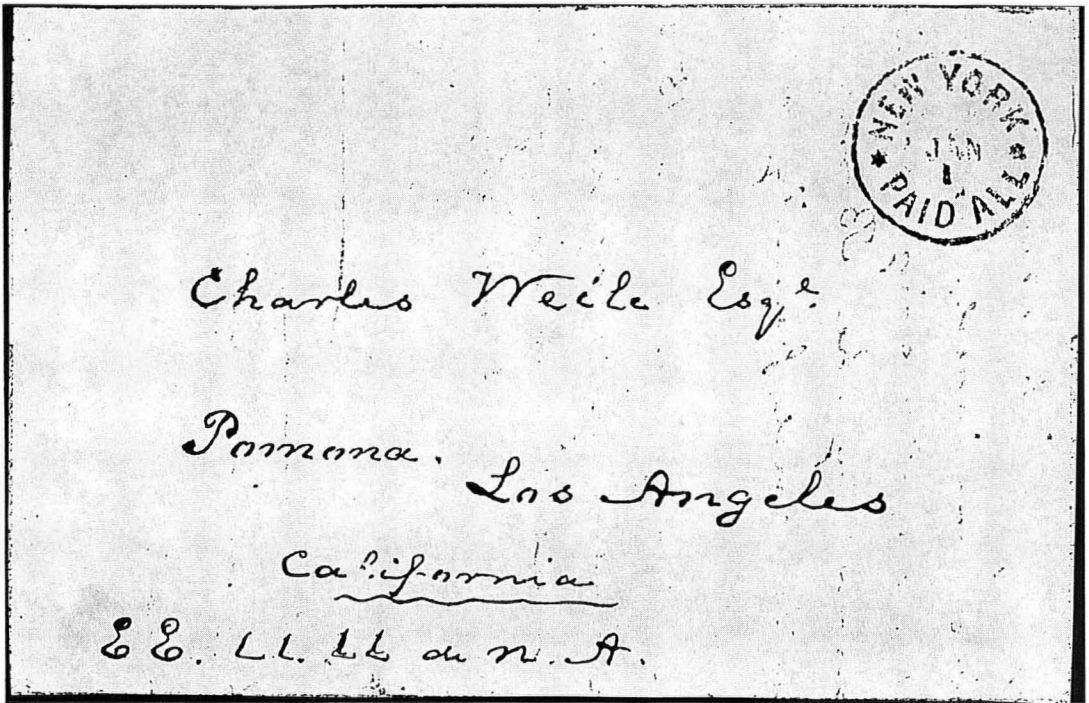 NEW YORK
JAN
1
PAID ALL
Charles Weile Esqe.
Pomona.
Los Angeles
California
EE. UU. UU de N. A.